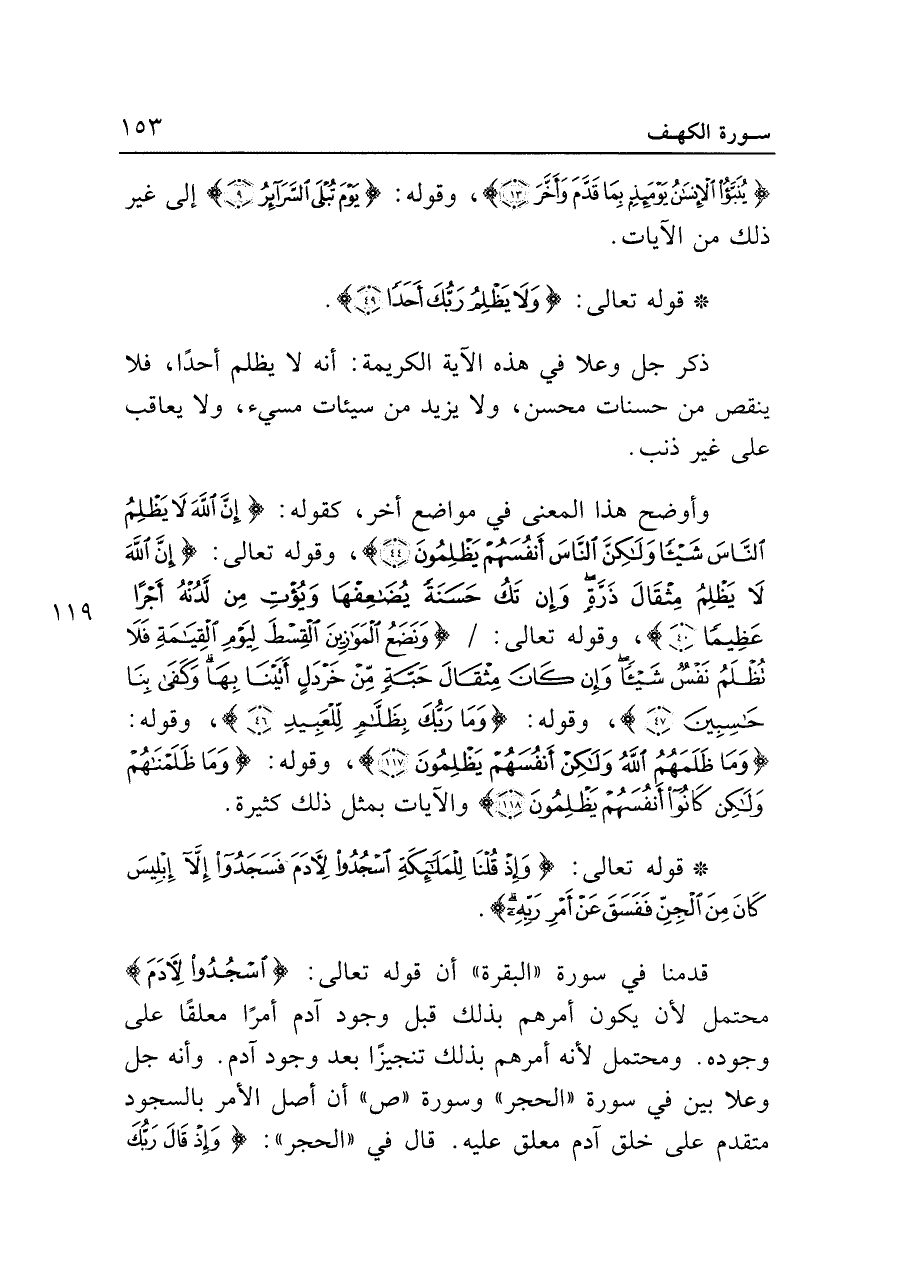 سورة الكهف ١٥٣
﴿ يُنَبَّؤُا۟ ٱلْإِنسَٰنُ يَوْمَئِذٍۭ بِمَا قَدَّمَ وَأَخَّرَ ﴿١٣﴾ ﴾، وقوله: ﴿ يَوْمَ تُبْلَى ٱلسَّرَآئِرُ ﴿٩﴾ ﴾ إلى غير
ذلك من الآيات.
* قوله تعالى: ﴿ وَلَا يَظْلِمُ رَبُّكَ أَحَدًا ﴿٤٩﴾ ﴾.
ذكر جل وعلا في هذه الآية الكريمة: أنه لا يظلم أحدًا، فلا
ينقص من حسنات محسن، ولا يزيد من سيئات مسيء، ولا يعاقب
على غير ذنب.
وأوضح هذا المعنى في مواضع أخر، كقوله: ﴿ إِنَّ ٱللَّهَ لَا يَظْلِمُ
ٱلنَّاسَ شَيْـًٔا وَلَٰكِنَّ ٱلنَّاسَ أَنفُسَهُمْ يَظْلِمُونَ ﴿٤٤﴾ ﴾، وقوله تعالى: ﴿ إِنَّ ٱللَّهَ
لَا يَظْلِمُ مِثْقَالَ ذَرَّةٍۖ وَإِن تَكُ حَسَنَةً يُضَٰعِفْهَا وَيُؤْتِ مِن لَّدُنْهُ أَجْرًا
١١٩
عَظِيمًا ﴿٤٠﴾ ﴾، وقوله تعالى: / ﴿ وَنَضَعُ ٱلْمَوَٰزِينَ ٱلْقِسْطَ لِيَوْمِ ٱلْقِيَٰمَةِ فَلَا
تُظْلَمُ نَفْسٌ شَيْـًٔاۖ وَإِن كَانَ مِثْقَالَ حَبَّةٍ مِّنْ خَرْدَلٍ أَتَيْنَا بِهَاۗ وَكَفَىٰ بِنَا
حَٰسِبِينَ ﴿٤٧﴾ ﴾، وقوله: ﴿ وَمَا رَبُّكَ بِظَلَّٰمٍ لِّلْعَبِيدِ ﴿٤٦﴾ ﴾، وقوله:
﴿ وَمَا ظَلَمَهُمُ ٱللَّهُ وَلَٰكِنْ أَنفُسَهُمْ يَظْلِمُونَ ﴿١١٧﴾ ﴾، وقوله: ﴿ وَمَا ظَلَمْنَٰهُمْ
وَلَٰكِن كَانُوٓا۟ أَنفُسَهُمْ يَظْلِمُونَ ﴿١١٨﴾ ﴾ والآيات بمثل ذلك كثيرة.
* قوله تعالى: ﴿ وَإِذْ قُلْنَا لِلْمَلَٰٓئِكَةِ ٱسْجُدُوا۟ لِـَٔادَمَ فَسَجَدُوٓا۟ إِلَّآ إِبْلِيسَ
كَانَ مِنَ ٱلْجِنِّ فَفَسَقَ عَنْ أَمْرِ رَبِّهِۦٓۗ ﴾.
قدمنا في سورة «البقرة» أن قوله تعالى: ﴿ ٱسْجُدُوا۟ لِـَٔادَمَ ﴾
محتمل لأن يكون أمرهم بذلك قبل وجود آدم أمرًا معلقًا على
وجوده. ومحتمل لأنه أمرهم بذلك تنجيزًا بعد وجود آدم. وأنه جل
وعلا بين في سورة «الحجر» وسورة «ص» أن أصل الأمر بالسجود
متقدم على خلق آدم معلق عليه. قال في «الحجر»: ﴿ وَإِذْ قَالَ رَبُّكَ